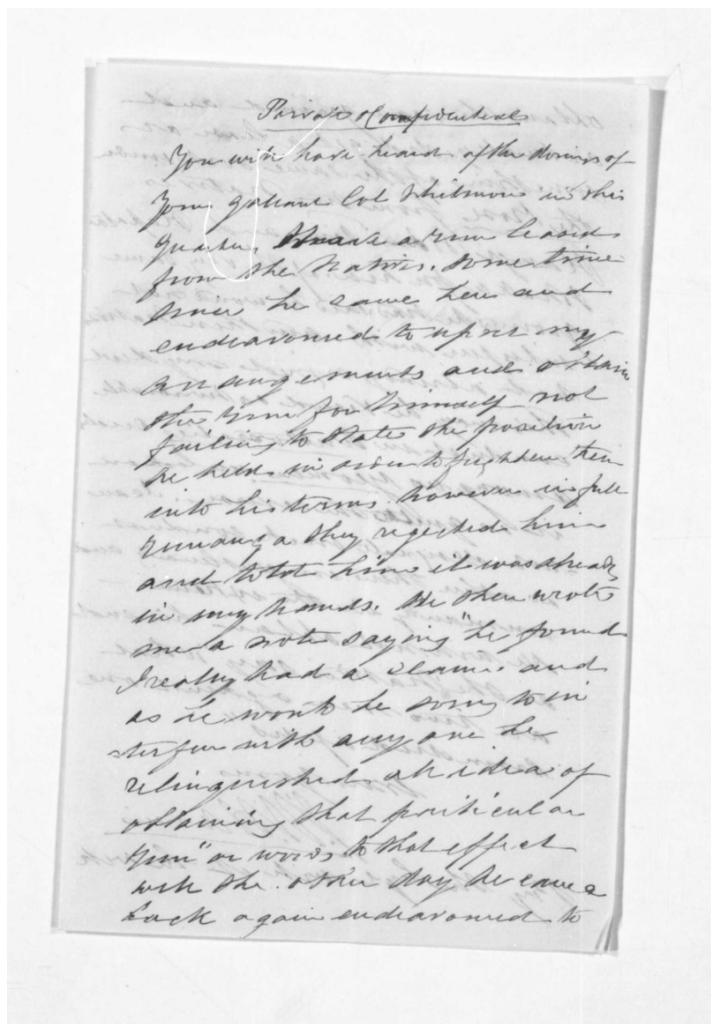 Private & Confidential
You will have heard of the doings of
your gallant Col Whitmore in this
quarter. I have a run leased
from the Natives. Some time
since he came here and
endeavoured to upset my
arrangements and obtain
the run for himself not
failing to state the position
he held in order to frighten them
into his terms however in full
runanga they rejected him
and told him it was already
in my hands. He then wrote
me a note saying "he found
I really had a claim and
as he would be sorry to in
terfere with any one he
relinquished all idea of
obtaining that particular
run" or words to that effect
well the other day he came
back again endeavoured to